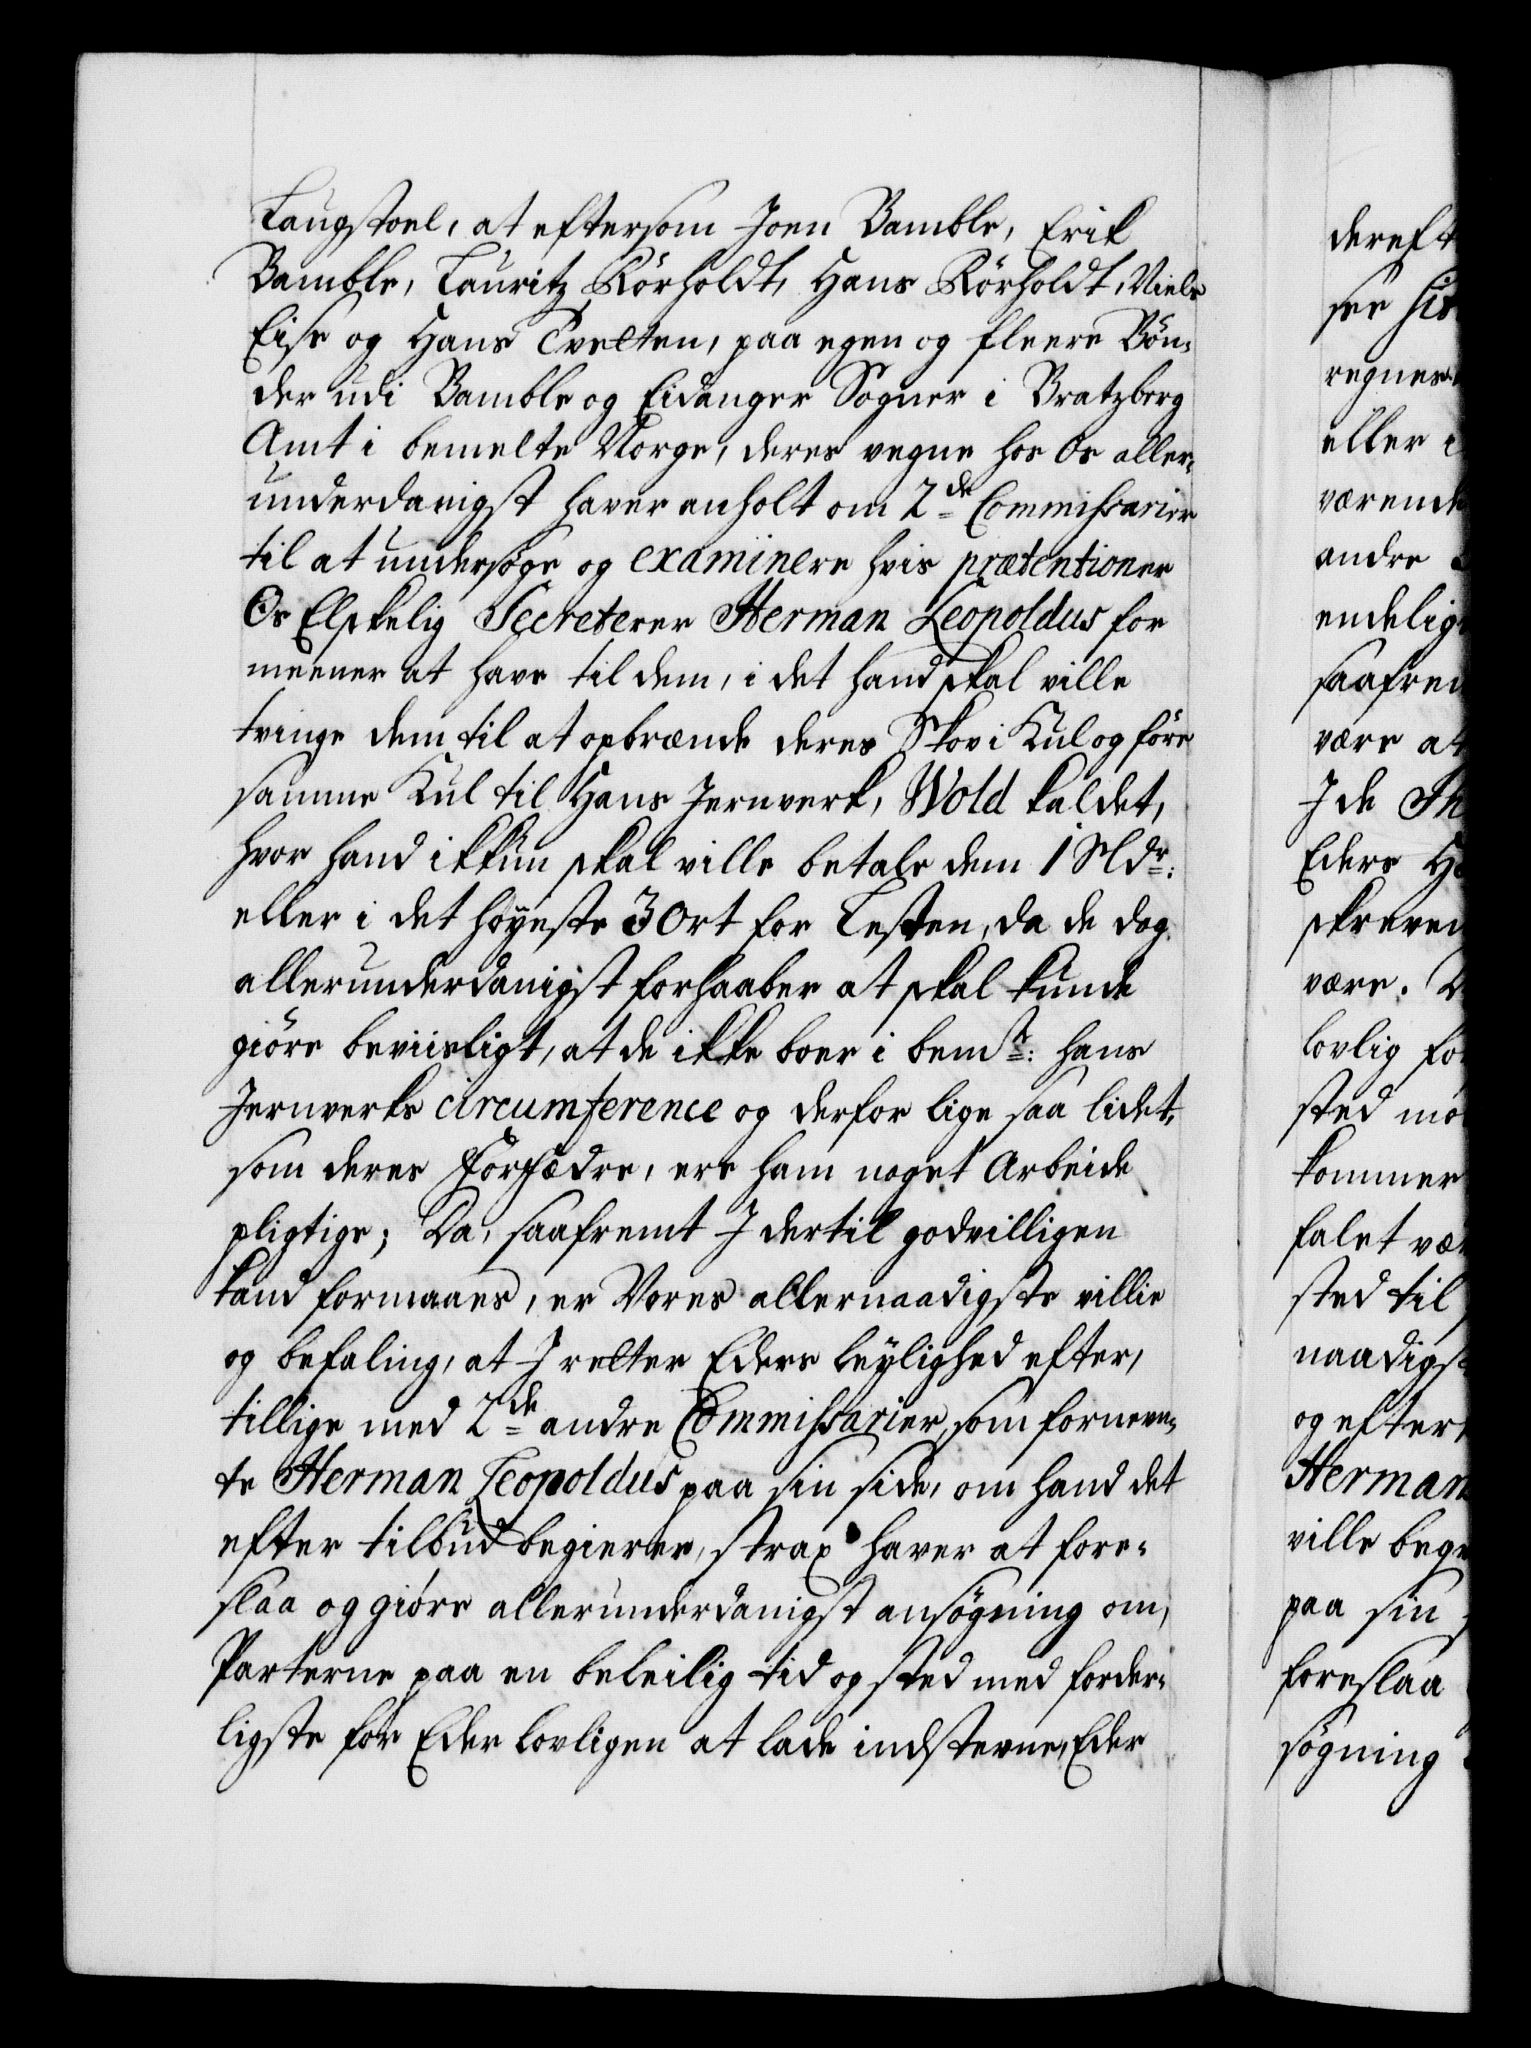 Laugstoel, at eftersom Joen Bamble, Erik
Bamble, Lauritz Rörholdt, Hans Rörholdt, Niels
Eise og Hans Tvetten, paa egen og fleere Bön-
der udi Bamble og Eidanger Sogner i Bratzberg
Amt i bemelte Norge, deres vegne hos Os aller-
underdanigst haver anholt om 2de Commissarier
til at undersøge og examinere hvis prætentioner
Os Elskelig Secreterer Herman Leopoldus for
meener at have til dem, i det hand skal ville
tvinge dem til at opbrænde deres Skov i Kul og före
samme Kul til Hans Jernverk, Wold kaldet,
hvor hand ikkun skal ville betale dem 1 Sldr:
eller i det høyeste 3 Ort for Lesten, da de dog
allerunderdanigst forhaaber at skal kunde
giöre beviisligt, at de ikke boer i bemte: hans
Jernverks circumference og derfor lige saa lidet,
som deres Forfædre, ere ham noget Arbeide
pligtige; Da, saafremt I dertil godvilligen
kand formaaes, er Vores allernaadigste villie
og befaling, at I retter Eders leylighed efter,
tillige med 2de andre Commissarier, som fornevn-
te Herman Leopoldus paa sin side, om hand det
efter tilbud begierer, strax haver at fore-
slaa og giöre allerunderdanigst ansøgning om,
Parterne paa en beleilig tid og sted med forder-
ligste for Eder lovligen at lade indstevne, Eder
dereft
see hi
regner
eller i
værend
andre
endelig
saafrem
være at
I de Th
Eders H
skreven
være. D
lovlig fo
sted mö
kommer
falet væ
sted til
naadigs
og efter
Herman
ville beg
paa sin
foreslaa
søgning